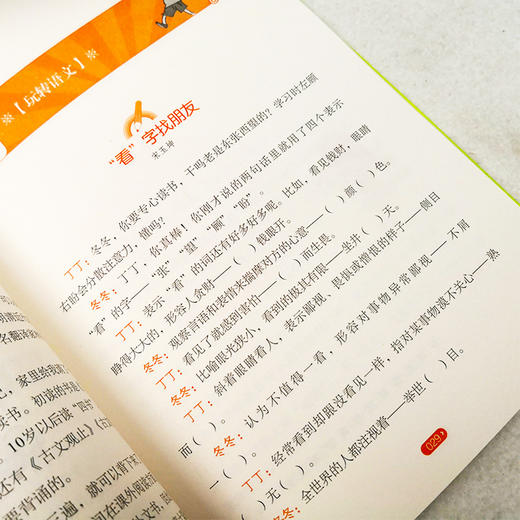 ※【玩转语文】※
“看”字找朋友
宋玉坤
丁丁：冬冬，你要专心读书，干吗老是东张西望的？学习时左顾
右盼会分散注意力，懂吗？
冬冬：丁丁，你真棒！你刚才说的两句话里就用了四个表示
“看”的字——“张”“望”“顾”“盼”。
丁丁：表示“看”的词还有好多好多呢。比如，看见钱财，眼睛
睁得大大的，形容人贪财——（ ）钱眼开。
冬冬：观察言语和表情来揣摩对方的心意——（ ）颜（ ）色。
丁丁：看见了就感到害怕——（ ）而生畏。
冬冬：比喻眼光狭小，看到的极其有限——坐井（ ）天。
丁丁：斜着眼睛看人，表示鄙视、畏惧或憎恨的样子——侧目
而（ ）。
冬冬：认为不值得一看，形容对事物异常鄙视——不屑
一（ ）。
丁丁：经常看到却跟没看见一样，指对某事物漠不关心——熟
（ ）无（ ）。
冬冬：全世界的人都注视着——举世（ ）目。
029
家里给我
读书。初读的
10岁以后读“四书
还有《古文观止》《古
要背诵的。
遍，就可以背下来
间在课外阅读